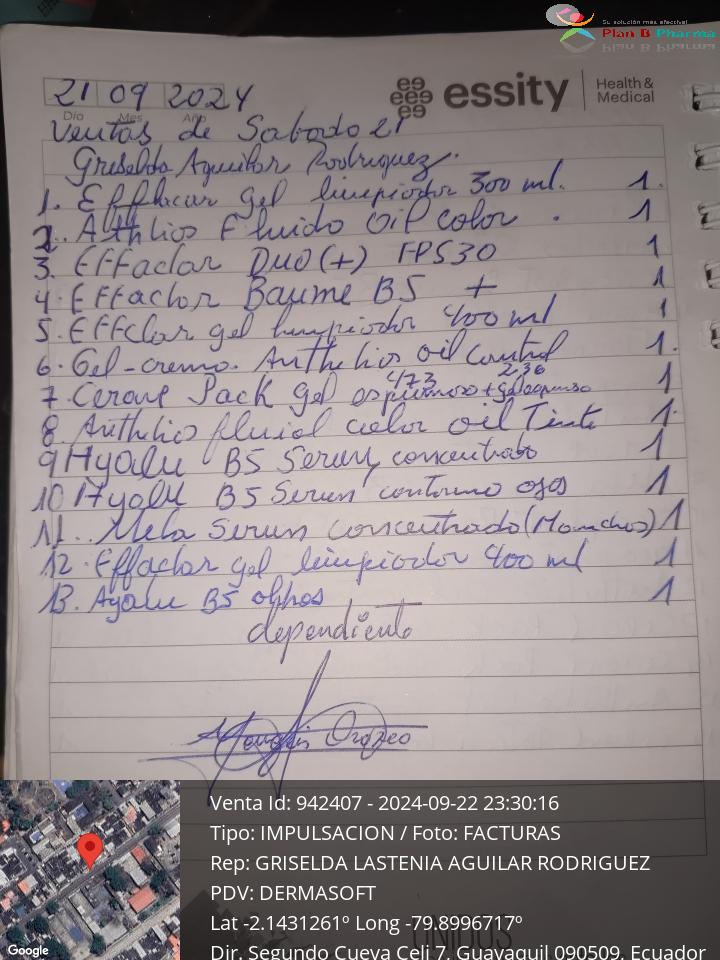 Su solución más efectiva!
Plan B Pharma
21 09 2024
Día Mes Año
essity
Health &
Medical
Ventas de Sabado 21
Griselda Aguilar Rodriguez.
1. Efflacar gel limpiador 300 ml. 1.
2.. Athlios Fluido Oil color . 1
3. Effaclar Duo (+) FPS30 1
4. Effaclor Baume B5 + 1
5. Effclar gel limpiador 400 ml 1
6. Gel-crema. Anthelios oil control 1.
7. Cerave Pack Gel espumoso 473 + gel espumoso 236 1
8. Anthelios fluid color oil Tinte 1.
9 Hyalu B5 Serum concentrado 1
10 Hyalu B5 Serum contorno ojos 1
11.. Mela Serum concentrado (Manchas) 1
12. Effaclar gel limpiador 400 ml 1
13. Ayalu B5 1
dependiente
Orozco
Venta Id: 942407 - 2024-09-22 23:30:16
Tipo: IMPULSACION / Foto: FACTURAS
Rep: GRISELDA LASTENIA AGUILAR RODRIGUEZ
PDV: DERMASOFT
Lat -2.1431261º Long -79.8996717º
Dir. Segundo Cueva Celi 7, Guayaquil 090509, Ecuador
Google
UNIDOS